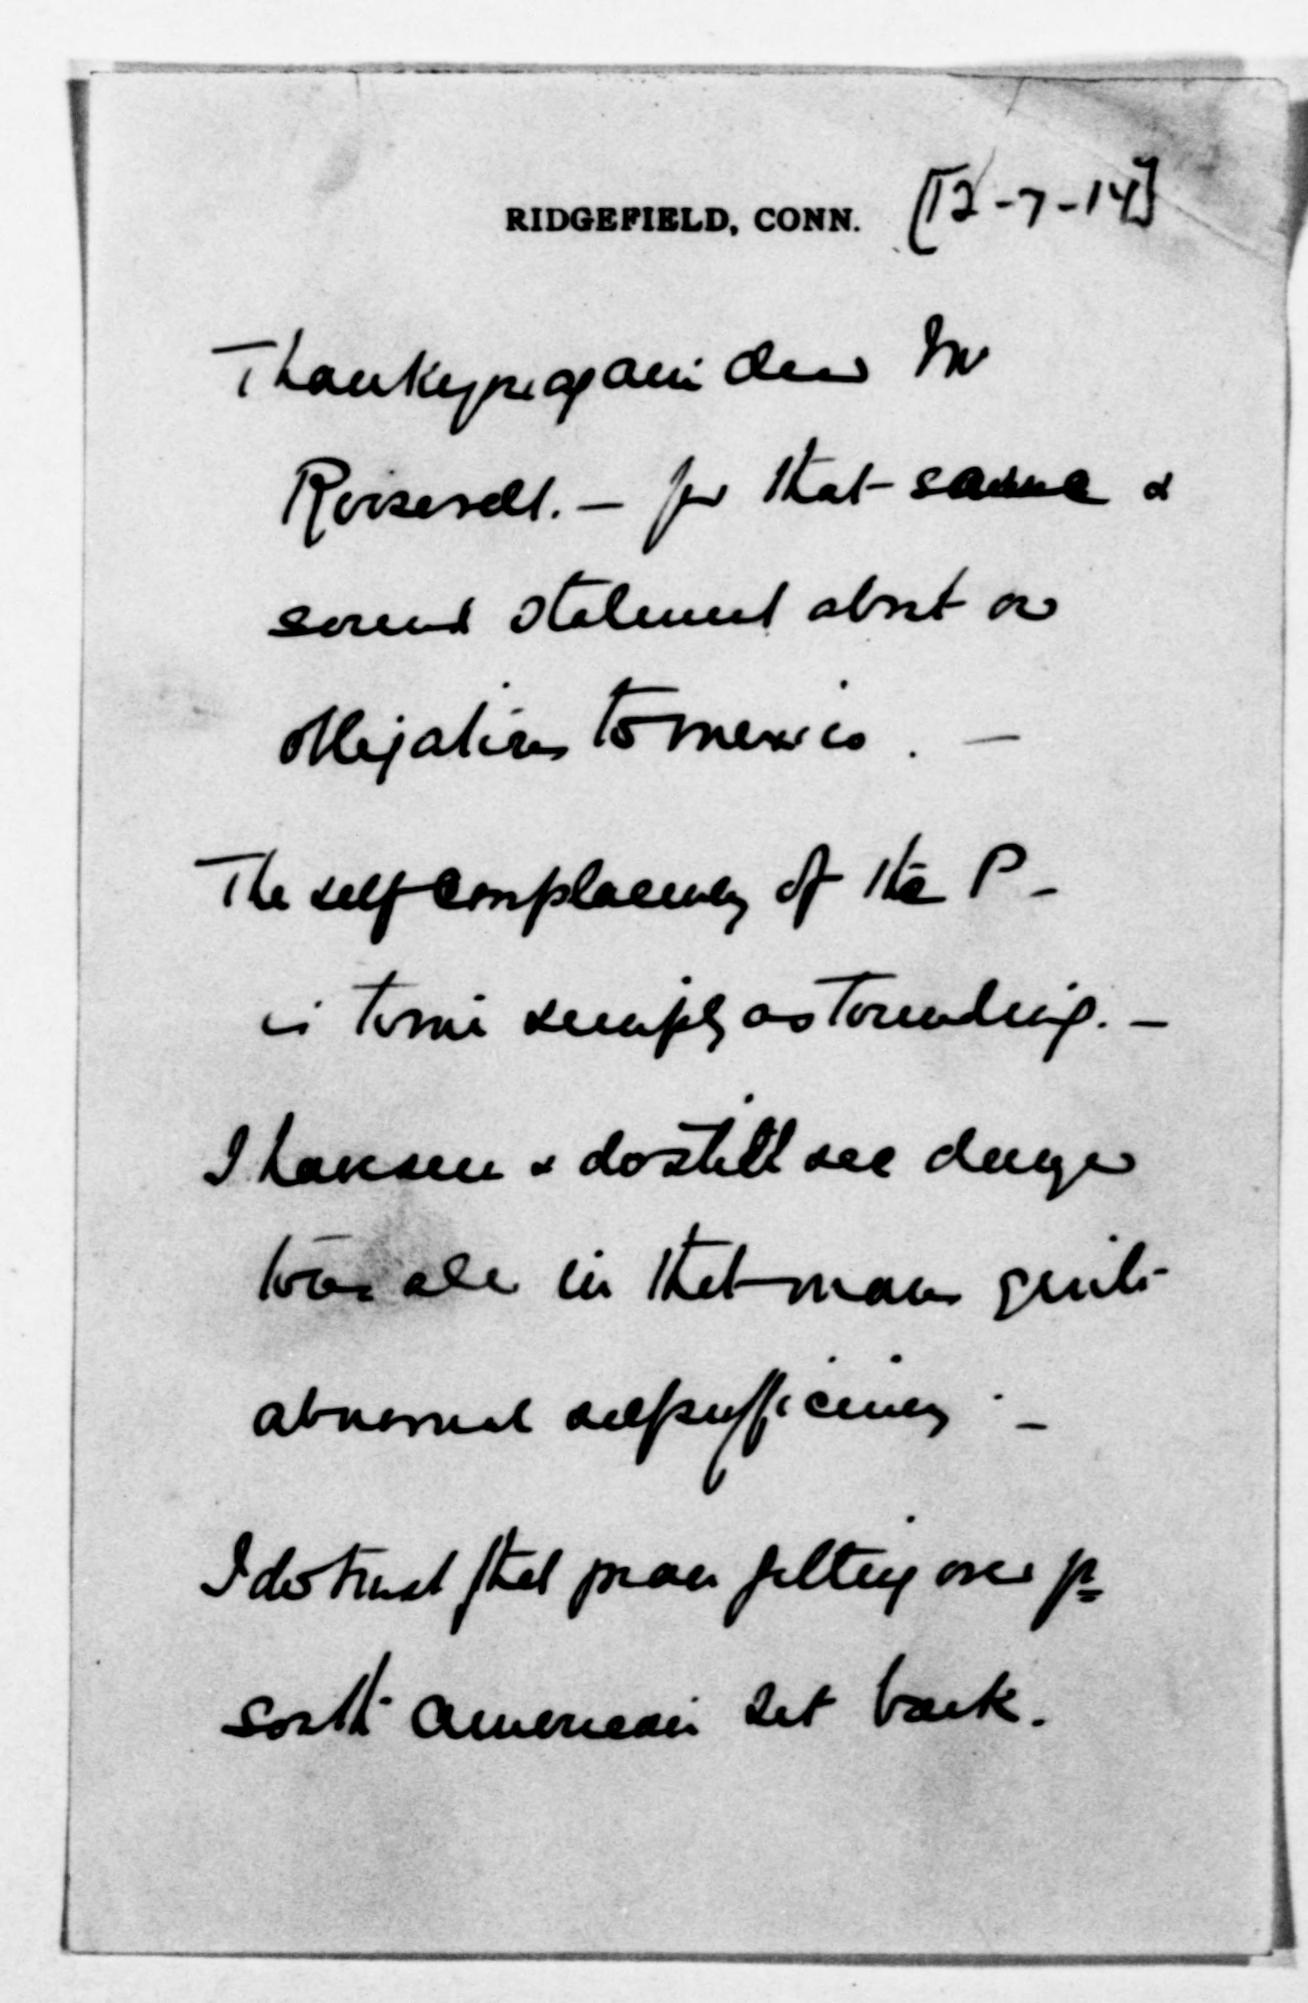 RIDGEFIELD, CONN. [12-7-14]
Thank you again dear Mr
Roosevelt. — for that same &
sound statement about our
obligations to Mexico. —
The self complacency of the P—
is to me simply astounding. —
I have seen & do still see danger
to us all in that mans
abnormal self sufficiency. —
I do trust that you are getting over yr
South American set back.